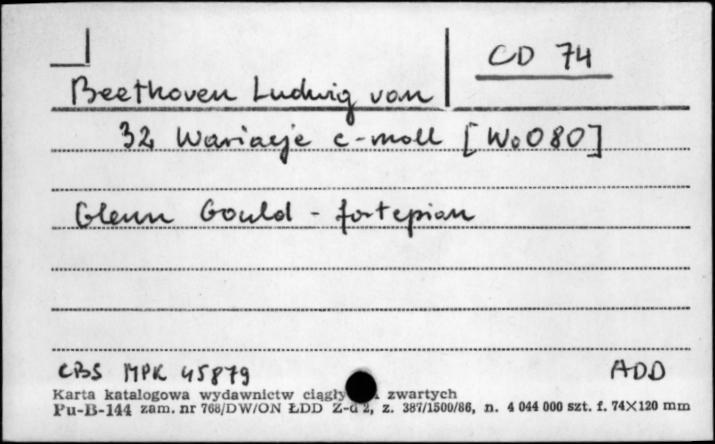 CD 74
Beethoven Ludwig van
32 Wariacje c-moll [WoO80]
Glenn Gould - fortepian
CBS MPK 45879 ADD
Karta katalogowa wydawnictw ciągły zwartych
Pu-B-144 zam. nr 768/DW/ON ŁDD Z-d 2, z. 387/1500/86, n. 4 044 000 szt. f. 74×120 mm